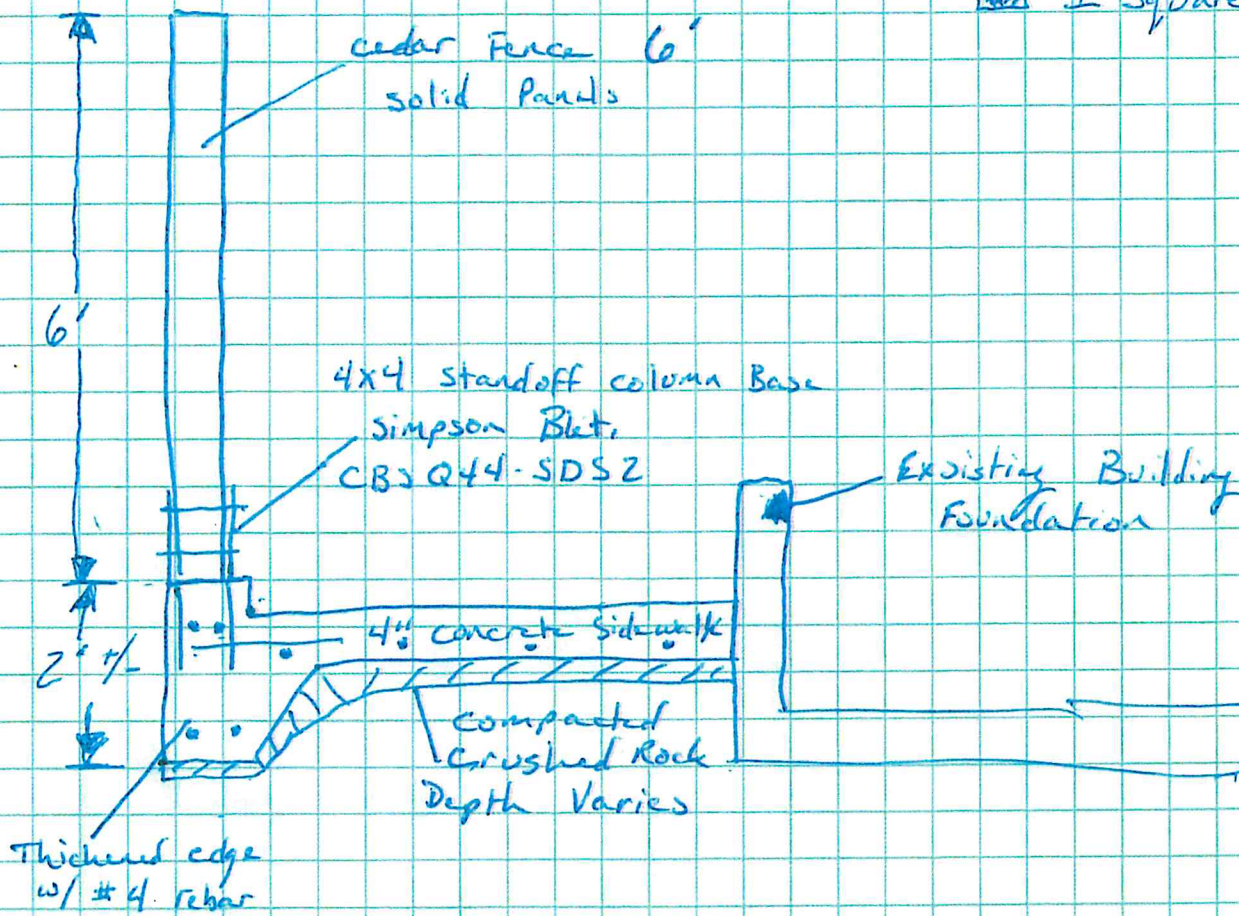 1 Square
cedar Fence 6'
solid Panels
6'
4x4 standoff column Base
Simpson Bkt.
CBSQ44-SDS2
Exsisting Building
Foundation
4" concrete Sidewalk
2' +/-
compacted
Crushed Rock
Depth Varies
Thickened edge
w/ #4 rebar